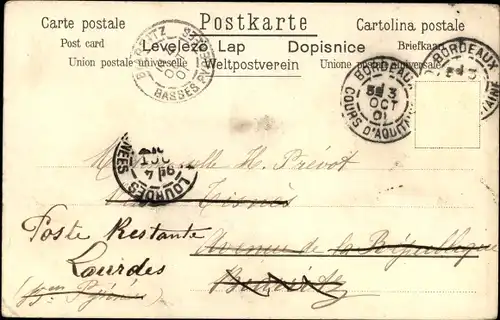 Carte postale
Postkarte
Cartolina postale
Post card
Levelező Lap
Dopisnice
Briefkaart
Union postale universelle
Weltpostverein
Unione postale universale
BIARRITZ
BASSES PYRENEES
BORDEAUX
3
OCT
01
COURS D'AQUITAINE
BORDEAUX
3
LOURDES
4
OCT
Mademoiselle H. Prévot
Poste Restante
Avenue de la République
Lourdes
Biarritz